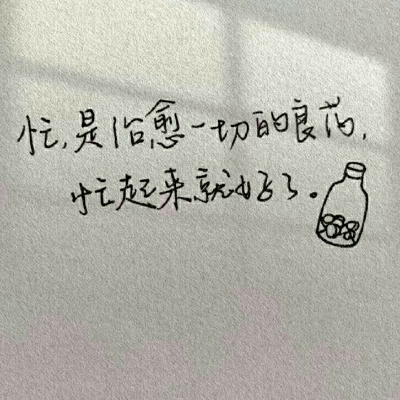 忙,是治愈一切的良药,
忙起来就好了。